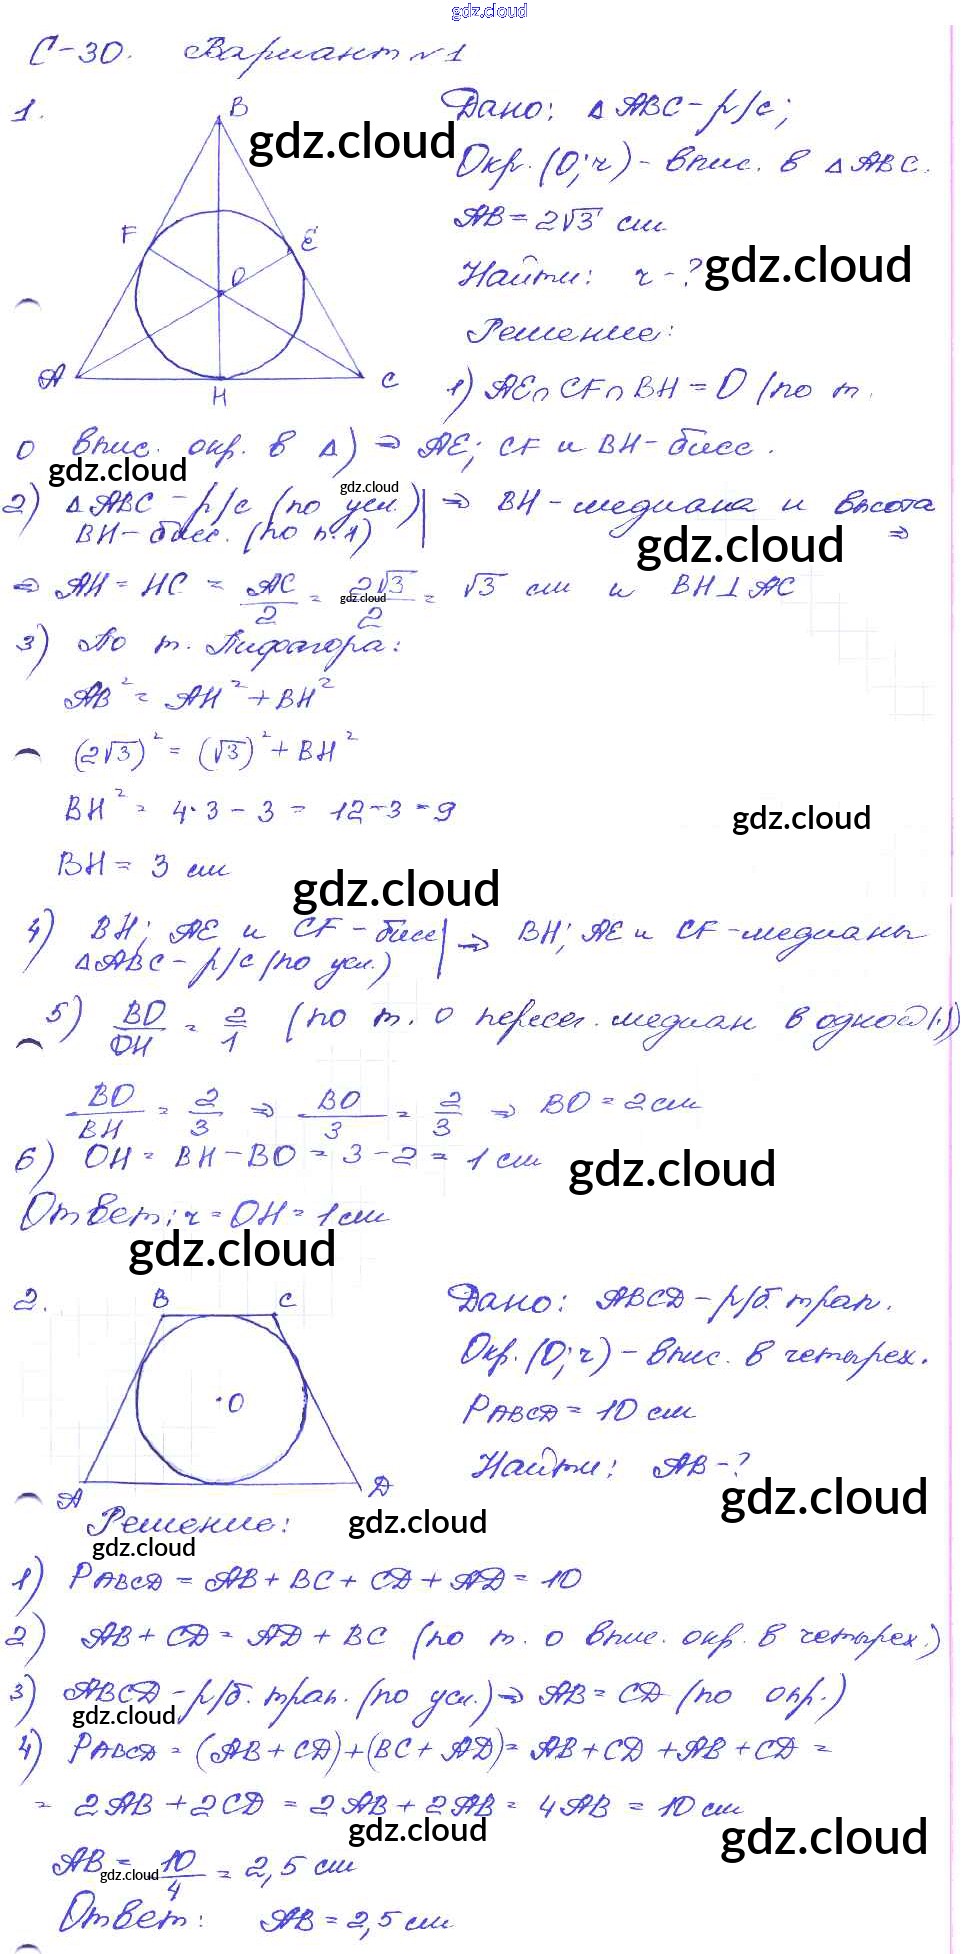 gdz.cloud
С-30. Вариант №1
1.
B
F
E
O
A
H
C
Дано: △ABC-р/с;
gdz.cloud
Окр.(O;r)-впис. в △ABC.
AB=2√3 см
Найти: r-?
gdz.cloud
Решение:
1) AE∩CF∩BH=O (по т.
о впис. окр. в △) ⇒ AE; CF и BH-бисс.
gdz.cloud
2) △ABC-р/с (по усл.)| ⇒ BH-медиана и высота
gdz.cloud
BH-бисс. (по п.1) ⇒
gdz.cloud
⇒ AH=HC = AC/2 = 2√3/2 = √3 см и BH⊥AC
gdz.cloud
3) По т. Пифагора:
AB²=AH²+BH²
(2√3)²=(√3)²+BH²
BH²=4·3-3=12-3=9
gdz.cloud
BH=3 см
gdz.cloud
4) BH; AE и CF-бисс| ⇒ BH; AE и CF-медианы
△ABC-р/с (по усл.)
5) BO/OH = 2/1 (по т. о пересеч. медиан в одной (·))
BO/BH = 2/3 ⇒ BO/3 = 2/3 ⇒ BO=2см
6) OH=BH-BO=3-2=1 см
gdz.cloud
Ответ: r=OH=1см
gdz.cloud
2.
B
C
O
A
D
Дано: ABCD-р/б.трап.
Окр.(O;r)-впис. в четырех.
PABCD=10 см
Найти: AB-?
gdz.cloud
Решение:
gdz.cloud
gdz.cloud
1) PABCD=AB+BC+CD+AD=10
2) AB+CD=AD+BC (по т. о впис. окр. в четырех.)
3) ABCD-р/б. трап. (по усл.)⇒AB=CD (по опр.)
gdz.cloud
4) PABCD=(AB+CD)+(BC+AD)=AB+CD+AB+CD=
= 2AB+2CD=2AB+2AB=4AB=10 см
gdz.cloud
gdz.cloud
AB = 10/4 = 2,5 см
gdz.cloud
Ответ: AB=2,5 см